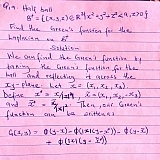 Q.4 Half ball
B⁺ = {(x,y,z) ∈ ℝ³ | x²+y²+z² < a, z>0}
Find the Green's function for the
Laplacian in B⁺
Solution
We can find the Green's function by
taking the Green's function for the
ball and reflecting it across the
xy-plane. Let x = (x₁, x₂, x₃)
define x̄ = (x₁, x₂, -x₃)
and Then, our Green's
function can be written:
G(x,y) = φ(y-x) - φ(|x|(y-x*)) - φ(y-x̄)
+ φ(|x|(y-x̄*))